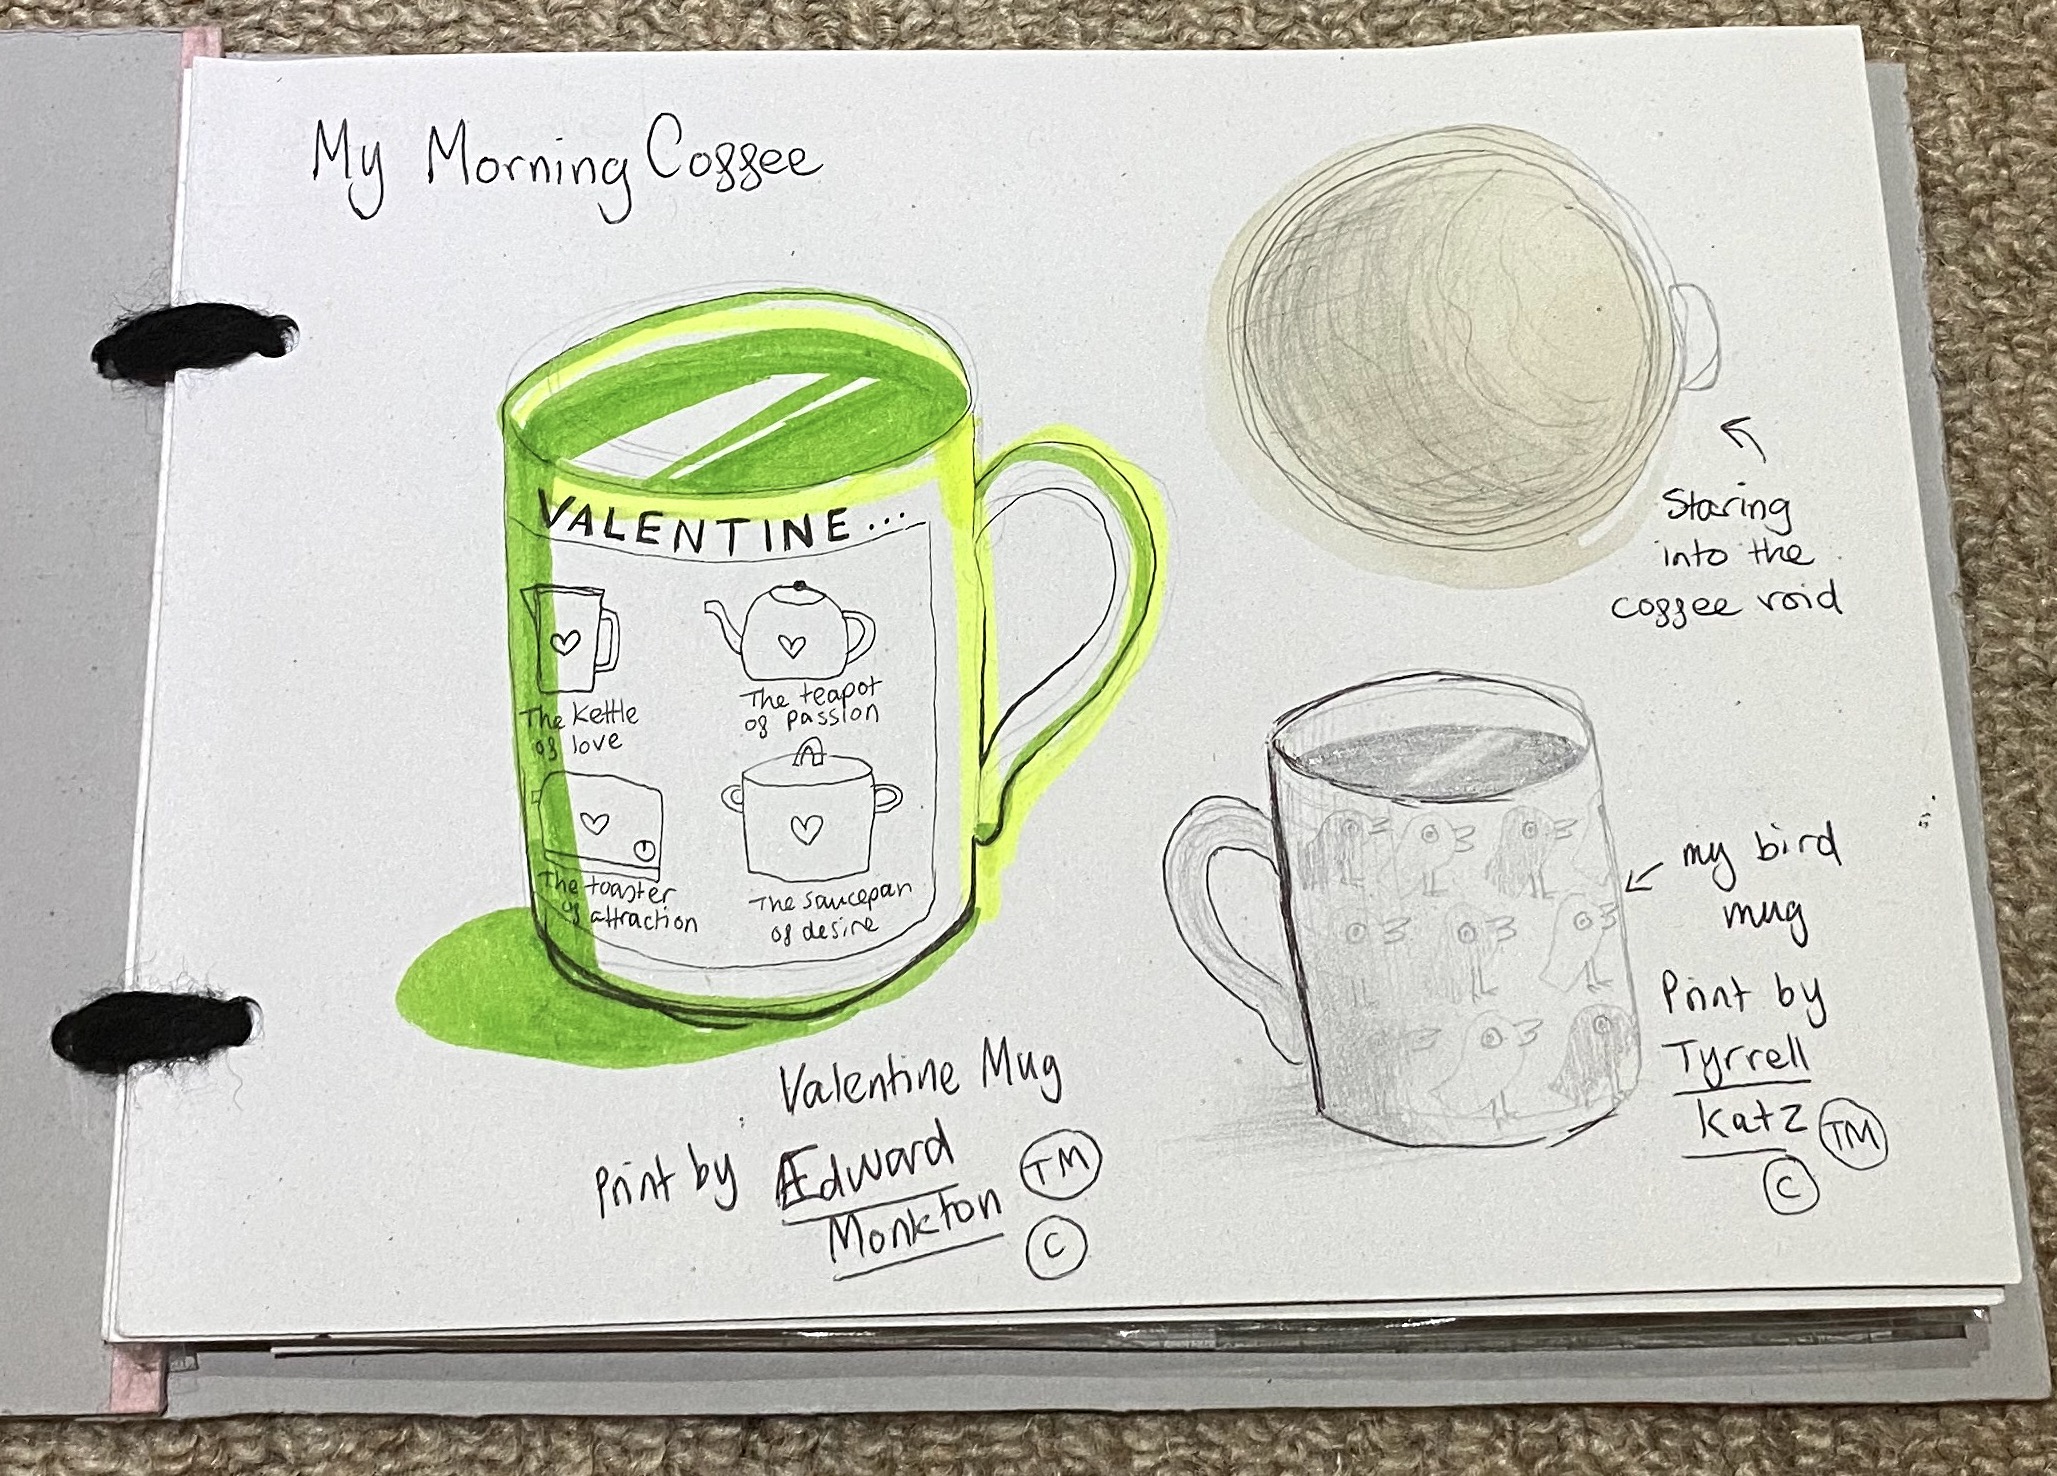 My Morning Coffee
VALENTINE...
The kettle
of love
The teapot
of passion
The toaster
of attraction
The saucepan
of desire
Valentine Mug
Print by Edward
Monkton
TM
C
Staring
into the
coffee void
my bird
mug
Print by
Tyrrell
Katz
TM
C